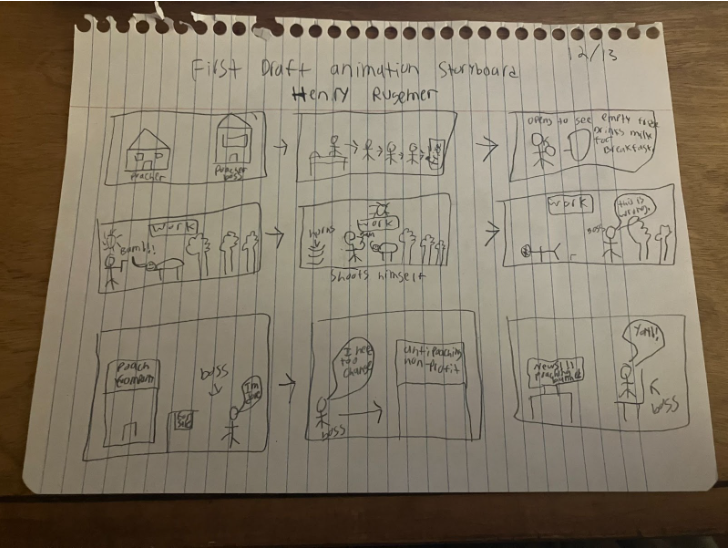 12/13
First Draft animation Storyboard
Henry Rugemer
Poacher
Poacher
boss
opens to see
empty fridge
drinks milk
for
breakfast
work
Bambi!
work
horns
shoots himself
work
this is
wrong!
boss
Poach
Company
boss
for
sale
I'm
done
I need
too
change
boss
anti Poaching
non-profit
News!!!
Poaching
banned
Yay!!
boss